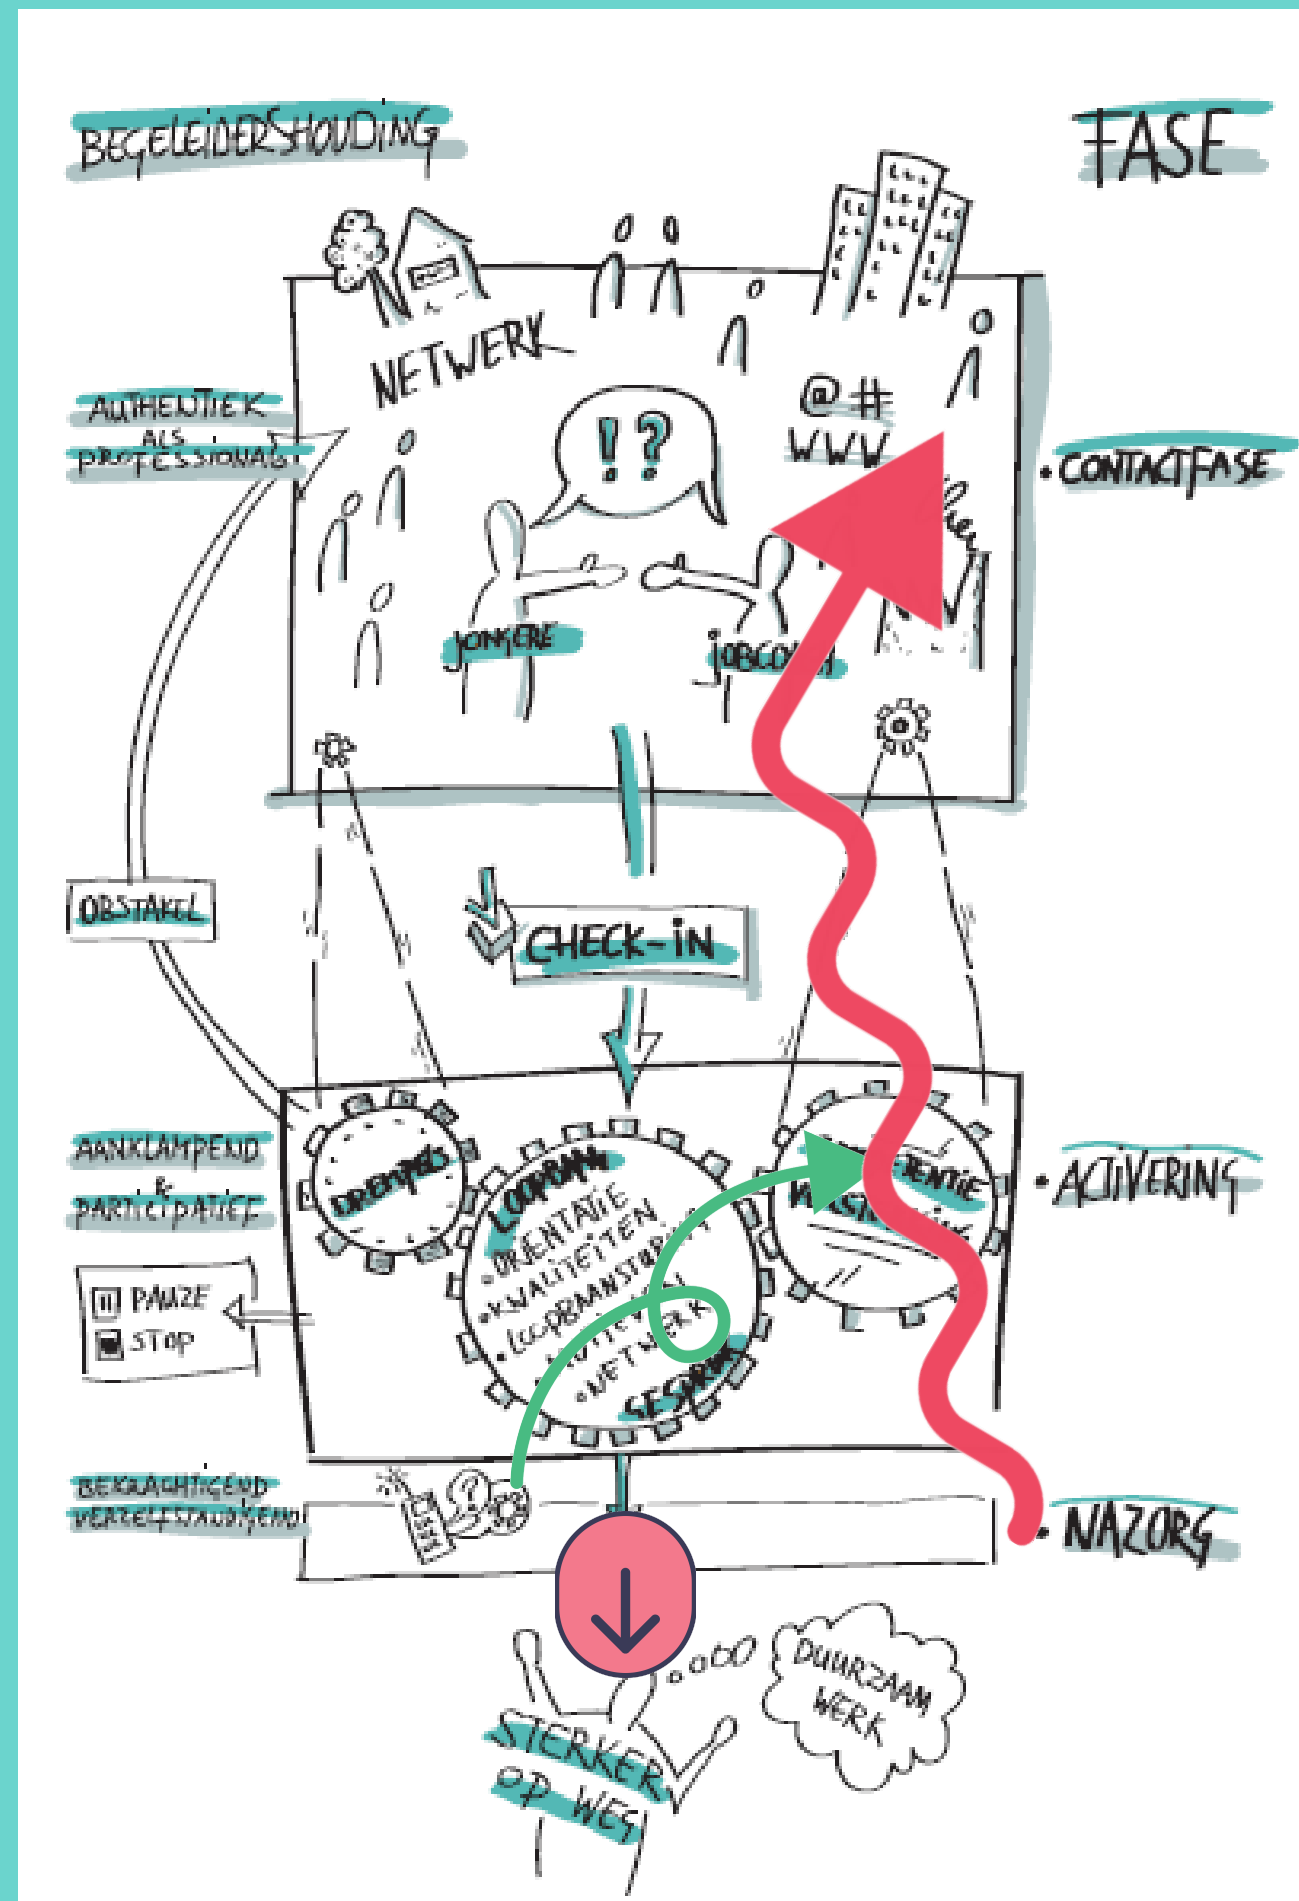 BEGELEIDERSHOUDING
FASE
NETWERK
@ #
WWW
! ?
AUTHENTIEK
ALS
PROFESSIONAL
• CONTACTFASE
JONGERE
OBSTAKEL
CHECK-IN
AANKLAMPEND
&
PARTICIPATIEF
DREMPELS
LOOPBAAN
• ORIENTATIE
• KWALITEITEN
•
• NETWERK
GESPREK
• ACTIVERING
PAUZE
STOP
BEKRACHTIGEND
VERZELFSTANDIGEND
?
• NAZORG
DUURZAAM
WERK
STERKER
OP WEG